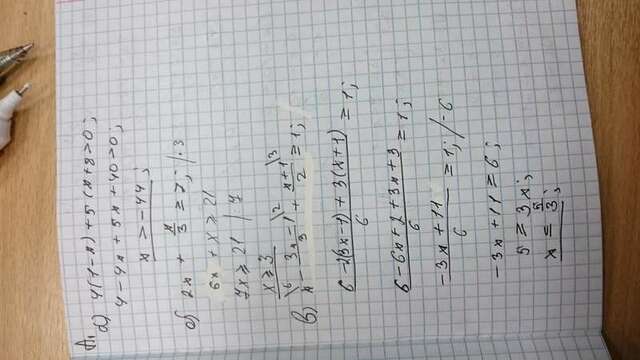 А1
а) 4(1-x)+5(x+8>0;
4-4x+5x+40>0;
x>-44;
б) 2x + x/3 ≥ 7; /·3
6x + x ≥ 21
7x ≥ 21 | 7
x ≥ 3
в) x\6 - 3x-1/3\2 + x+1/2\3 ≥ 1;
6-2(3x-1)+3(x+1)/6 ≥ 1;
6-6x+2+3x+3/6 ≥ 1;
-3x+11/6 ≥ 1; /·6
-3x+11 ≥ 6;
5 ≥ 3x;
x ≤ 5/3;